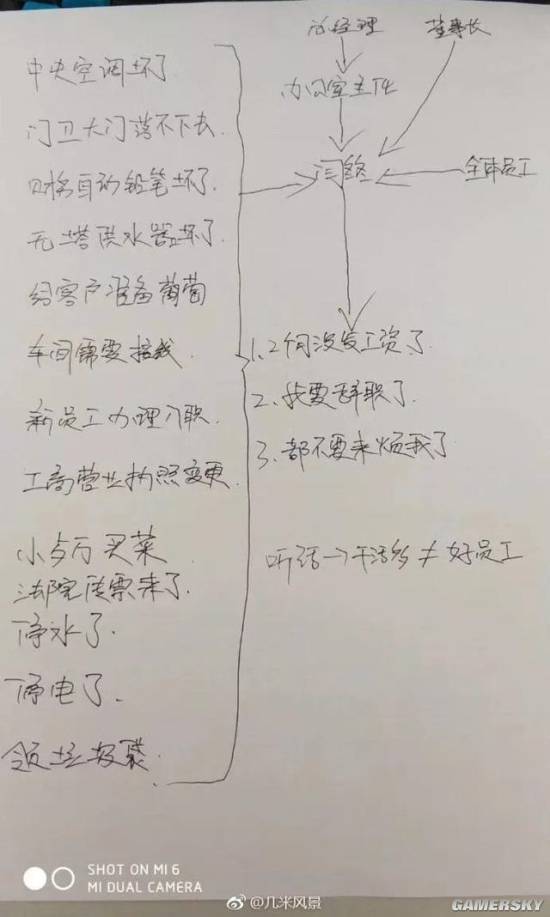 中央空调坏了
门卫大门落不下去
财务自动铅笔坏了
无塔供水器坏了
给客户准备葡萄
车间需要
新员工办理入职
工商营业执照变更
小 买菜
法院传票来了
停水了
停电了
领垃圾袋
总经理
董事长
办公室主任
闫
全体员工
1、2个月没发工资了
2、我要辞职了
3、都不要来烦我了
听话→干活多≠好员工
SHOT ON MI 6
MI DUAL CAMERA
@几米风景
GAMERSKY